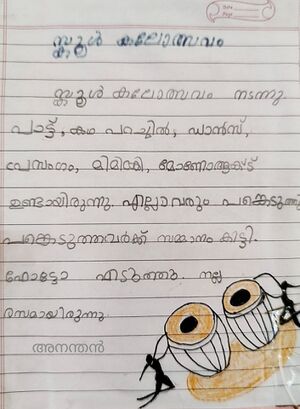 സ്കൂൾ കലോത്സവം
സ്കൂൾ കലോത്സവം നടന്നു
പാട്ട്, കഥ പറച്ചിൽ, ഡാൻസ്,
പ്രസംഗം, മിമിക്രി, മോണോആക്ട്
ഉണ്ടായിരുന്നു. എല്ലാവരും പങ്കെടുത്തു
പങ്കെടുത്തവർക്ക് സമ്മാനം കിട്ടി.
ഫോട്ടോ എടുത്തു. നല്ല
രസമായിരുന്നു
അനന്തൻ